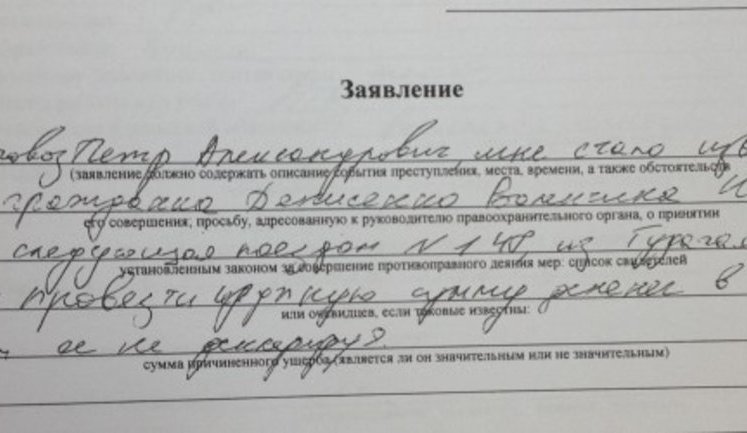 Заявление
Петр Александрович, мне стало
(заявление должно содержать описание события преступления, места, времени, а также обстоятельств
гражданка Денисенко
его совершения, просьбу, адресованную к руководителю правоохранительного органа, о принятии
следующая поездом N
установленным законом за совершение противоправного деяния мер: список свидетелей
провезти крупную сумму денег в
или очевидцев, если таковые известны:
ее не декларируя.
сумма причиненного ущерба (является ли он значительным или не значительным)